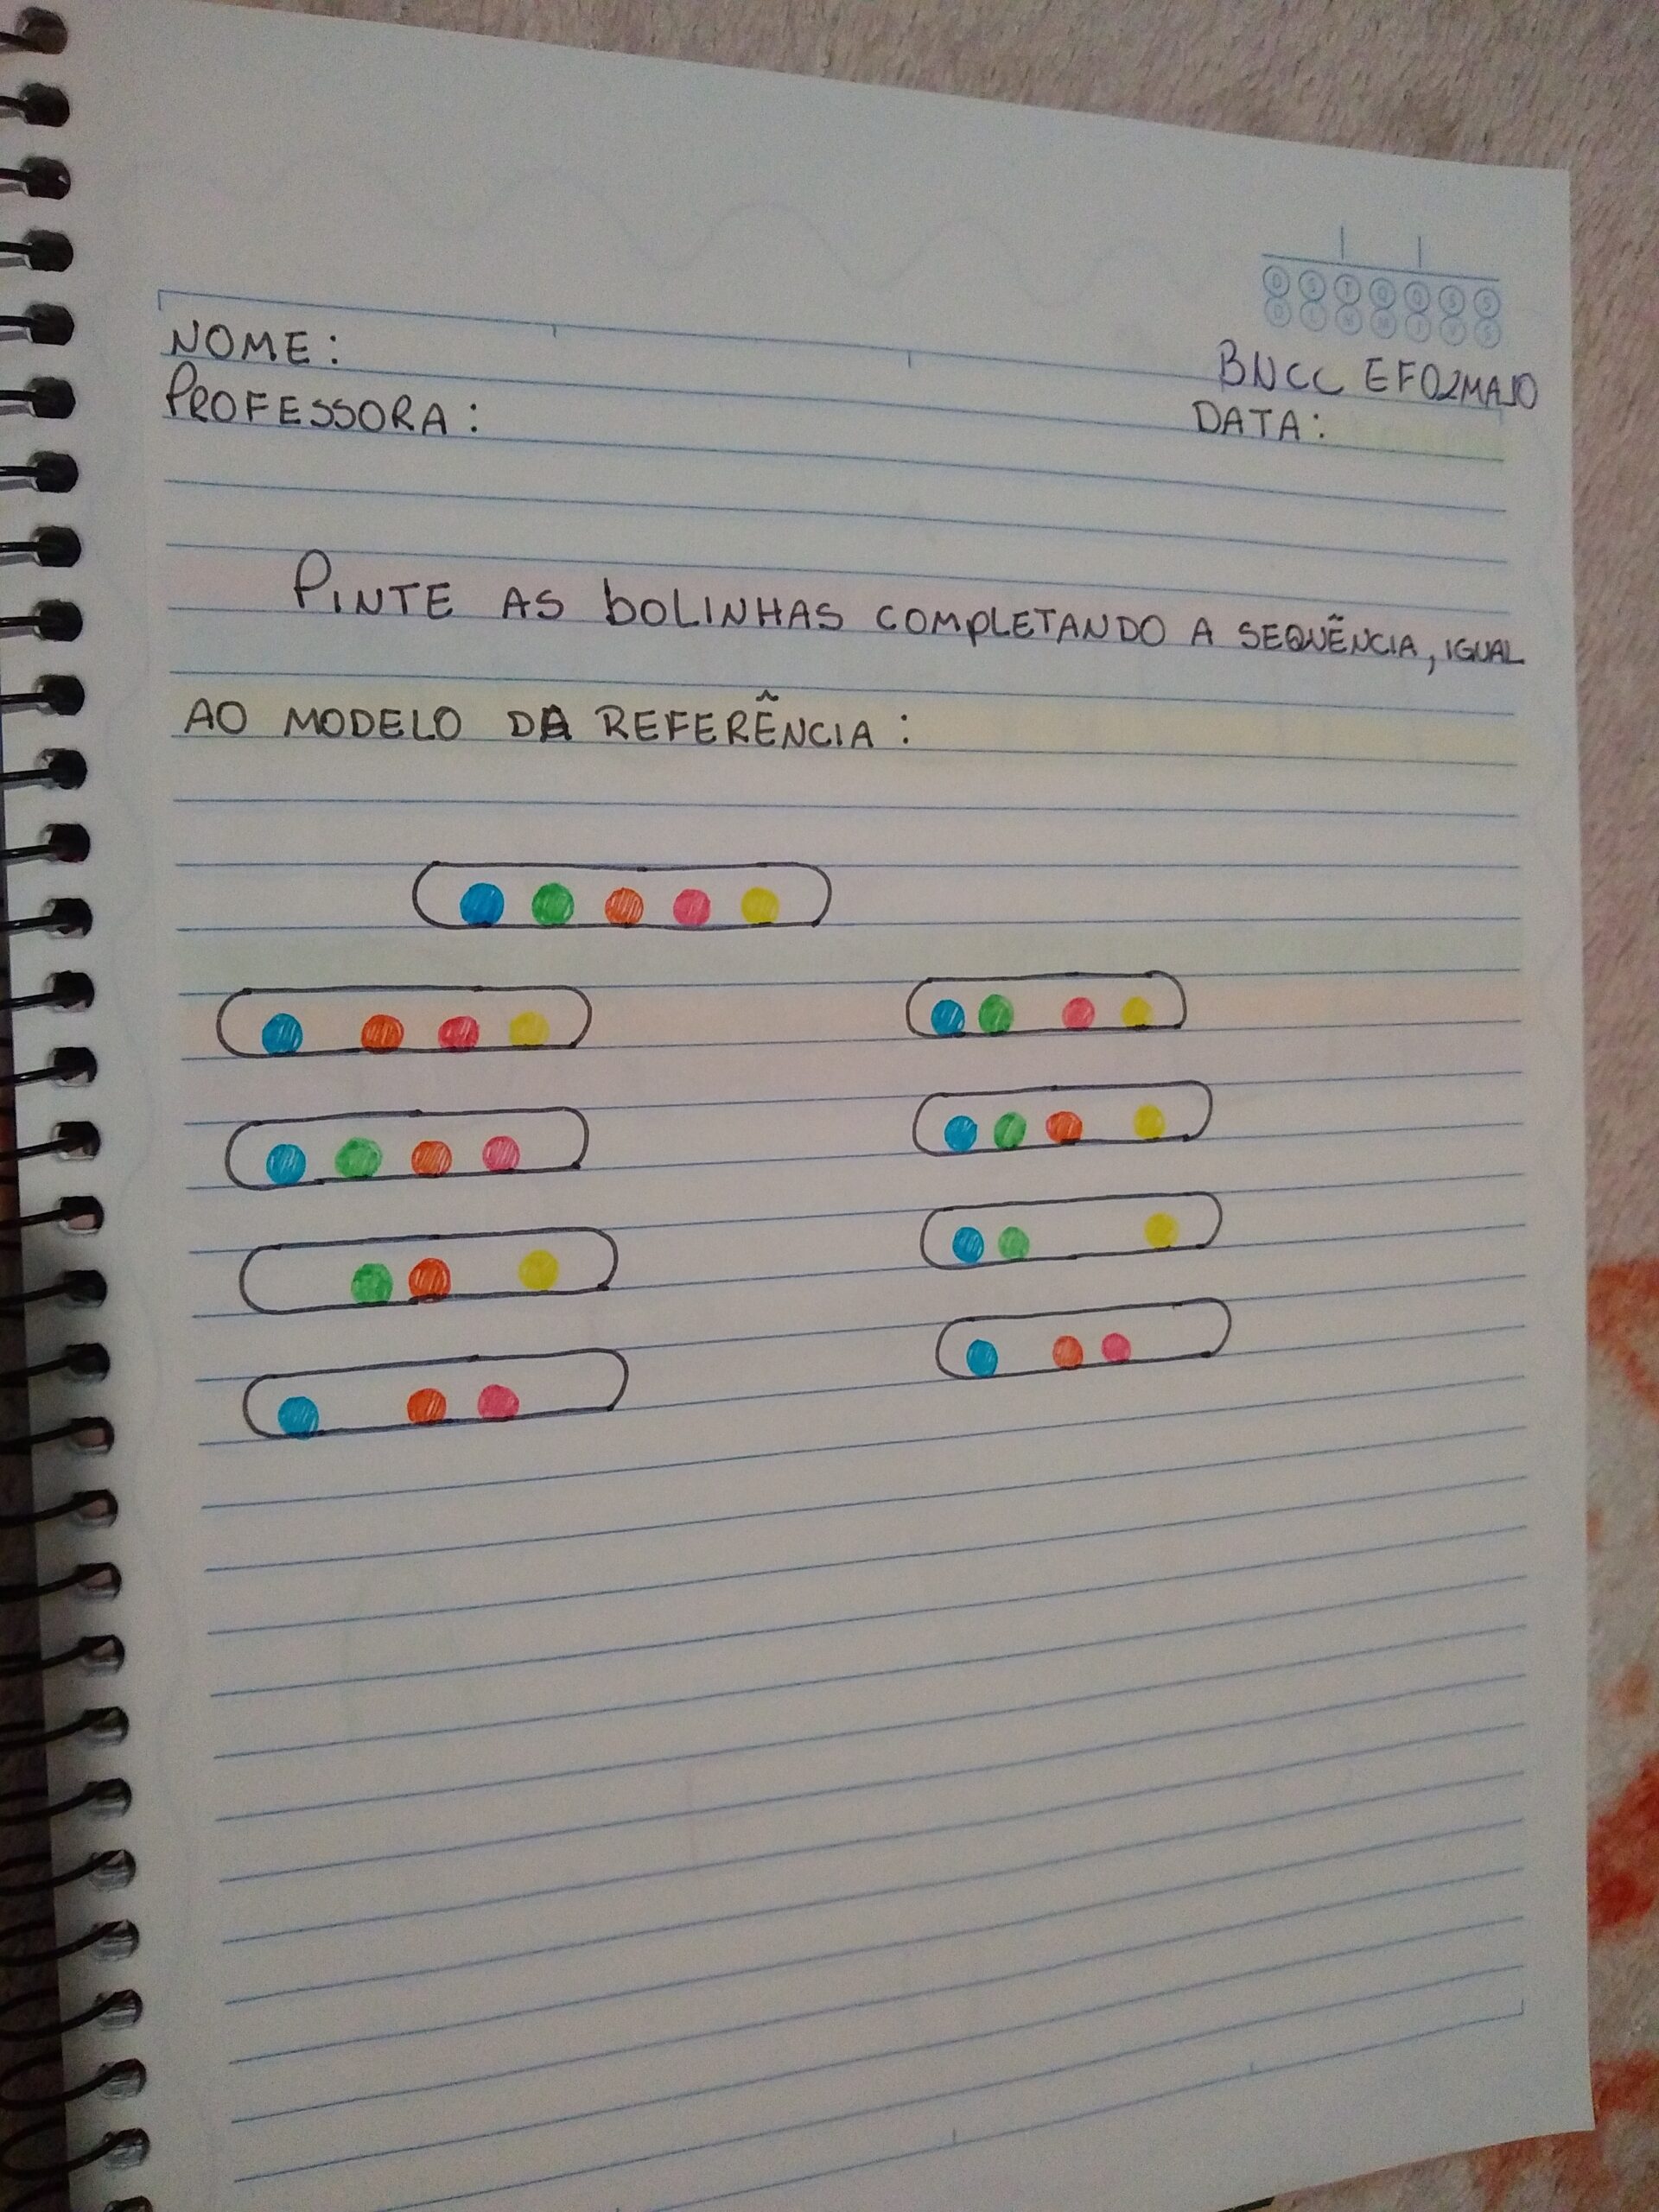 D S T Q Q S S
NOME:
BNCC EF02MA10
PROFESSORA:
DATA:
PINTE AS bOLINHAS COMPLETANDO A SEQUÊNCIA, IGUAL
AO MODELO DA REFERÊNCIA: